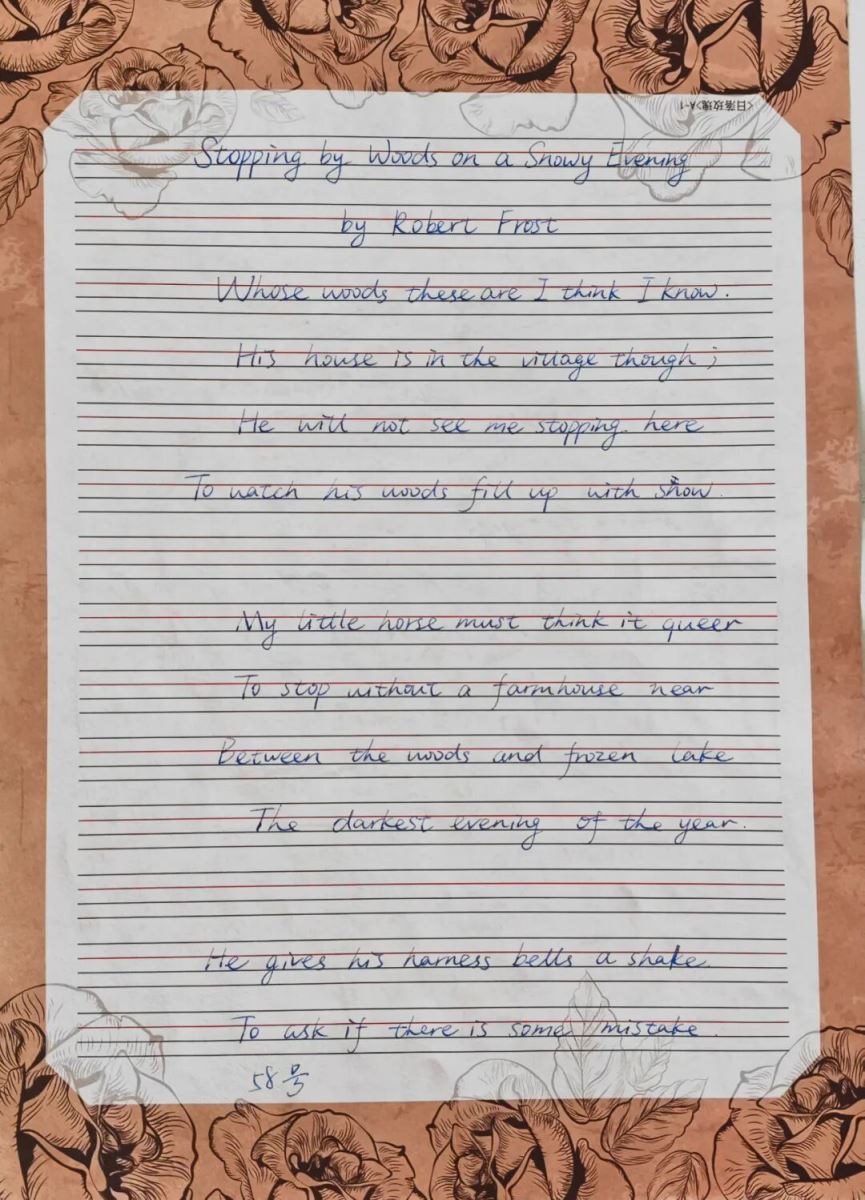 <日落玫瑰>A-1
Stopping by Woods on a Snowy Evening
by Robert Frost
Whose woods these are I think I know.
His house is in the village though;
He will not see me stopping here
To watch his woods fill up with snow.
My little horse must think it queer
To stop without a farmhouse near
Between the woods and frozen lake
The darkest evening of the year.
He gives his harness bells a shake.
To ask if there is some mistake.
58号